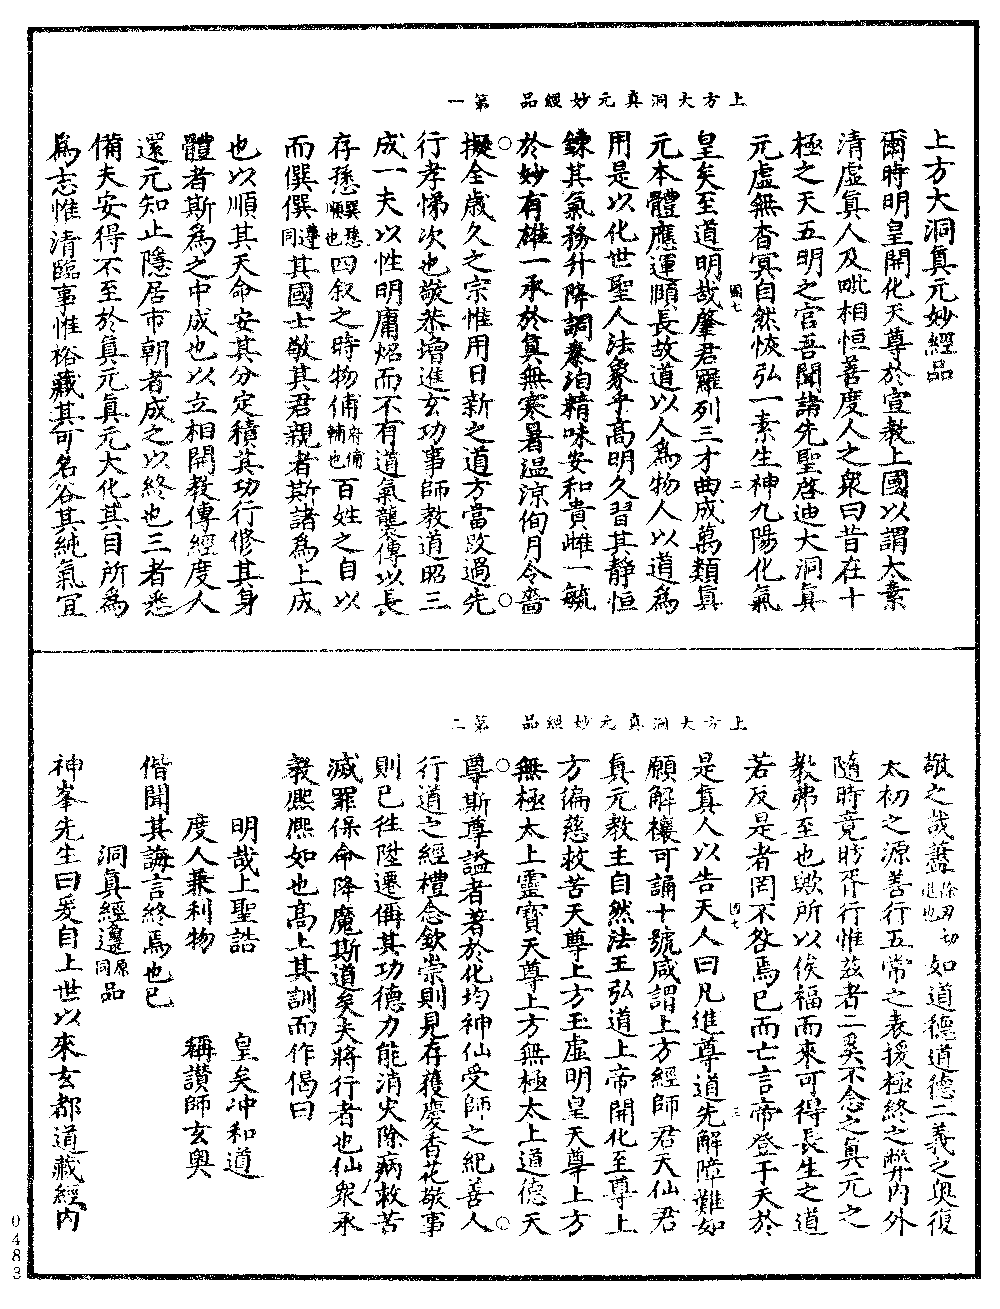 上方大洞真元妙經品　第一
上方大洞真元妙經品
爾時明皇開化天尊於宣教上國以謂太素
清虛真人及毗相恒善度人之衆曰昔在十
極之天五明之宮吾聞諸先聖啓迪大洞真
元虛無杳冥自然恢弘一素生神九陽化氣
皇矣至道明哉肇君羅列三才曲成萬類真
國七
二
元本體應運順長故道以人為物人以道為
用是以化世聖人法象乎高明久習其靜恒
鍊其氣務升降調泰洎精味安和貴雌一毓
於妙有雄一承於真無寒暑溫涼徇月令嗇
擬全歲久之宗惟用日新之道方當改過先
行孝悌次也敬恭增進玄功事師教道昭三
成一夫以性明庸焰而不有道氣襲傳以長
存愻順也巽愻四叙之時物俌輔也府俌百姓之自以
而僎僎同遵其國士敬其君親者斯諸為上成
也以順其天命安其分定積其功行修其身
體者斯為之中成也以立相開教傳經度人
還元知止隱居市朝者成之以終也三者悉
備夫安得不至於真元真元大化其目所為
為志惟清臨事惟裕藏其可名谷其純氣宜
上方大洞真元妙經品　第二
敬之哉蓋除刃切進也如道德道德二義之奥復
太初之源善行五常之表援極終之弊内外
隨時竟眝胥行惟兹者二奚不念之真元之
教弗至也歟所以俟福而來可得長生之道
若反是者罔不咎焉已而亡言帝登于天於
是真人以告天人曰凡進尊道先解障難如
國七
三
願解禳可誦十號咸謂上方經師君天仙君
真元教主自然法王弘道上帝開化至尊上
方徧慈救苦天尊上方玉虛明皇天尊上方
無極太上靈寶天尊上方無極太上道德天
尊斯尊謚者著於化均神仙受師之紀善人
行道之經禮念欽崇則見存獲慶香花敬事
則已往陞遷偁其功德力能消灾除病救苦
滅罪保命降魔斯道矣夫將行者也仙衆承
毅熙熙如也高上其訓而作偈曰
明哉上聖誥　皇矣冲和道
度人兼利物　稱讚師玄奥
偕聞其誨言終焉也已
洞真經邍同原品
神峯先生曰爰自上世以來玄都道藏經内
0483